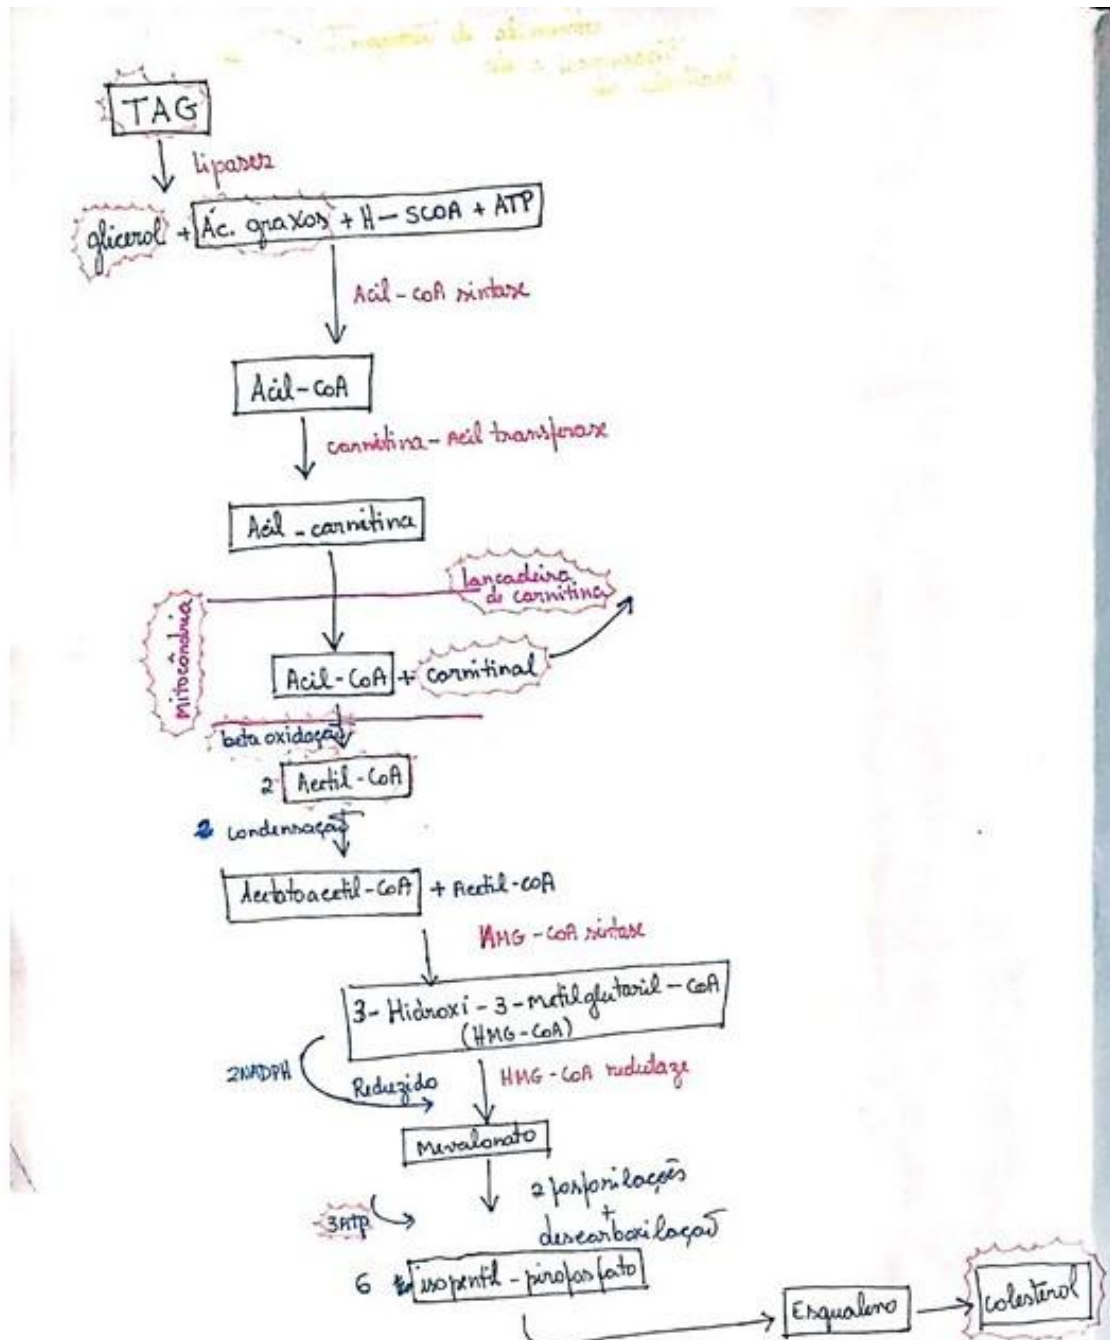 TAG
lipases
glicerol + Ác. graxos + H - SCOA + ATP
Acil-CoA sintase
Acil-CoA
carnitina-Acil transferase
Acil-carnitina
lançadeira
de carnitina
Mitocôndria
Acil-CoA + carnitinal
beta oxidação
2 Acetil-CoA
2 condensação
Acetatoacetil-CoA + Acetil-CoA
HMG-CoA sintase
3-Hidroxi-3-metilglutaril-CoA
(HMG-CoA)
2NADPH
Reduzido
HMG-CoA redutaze
Mevalonato
2 fosforilações
+
descarboxilação
3ATP
6 isopentil-pirofosfato
Esqualeno
colesterol